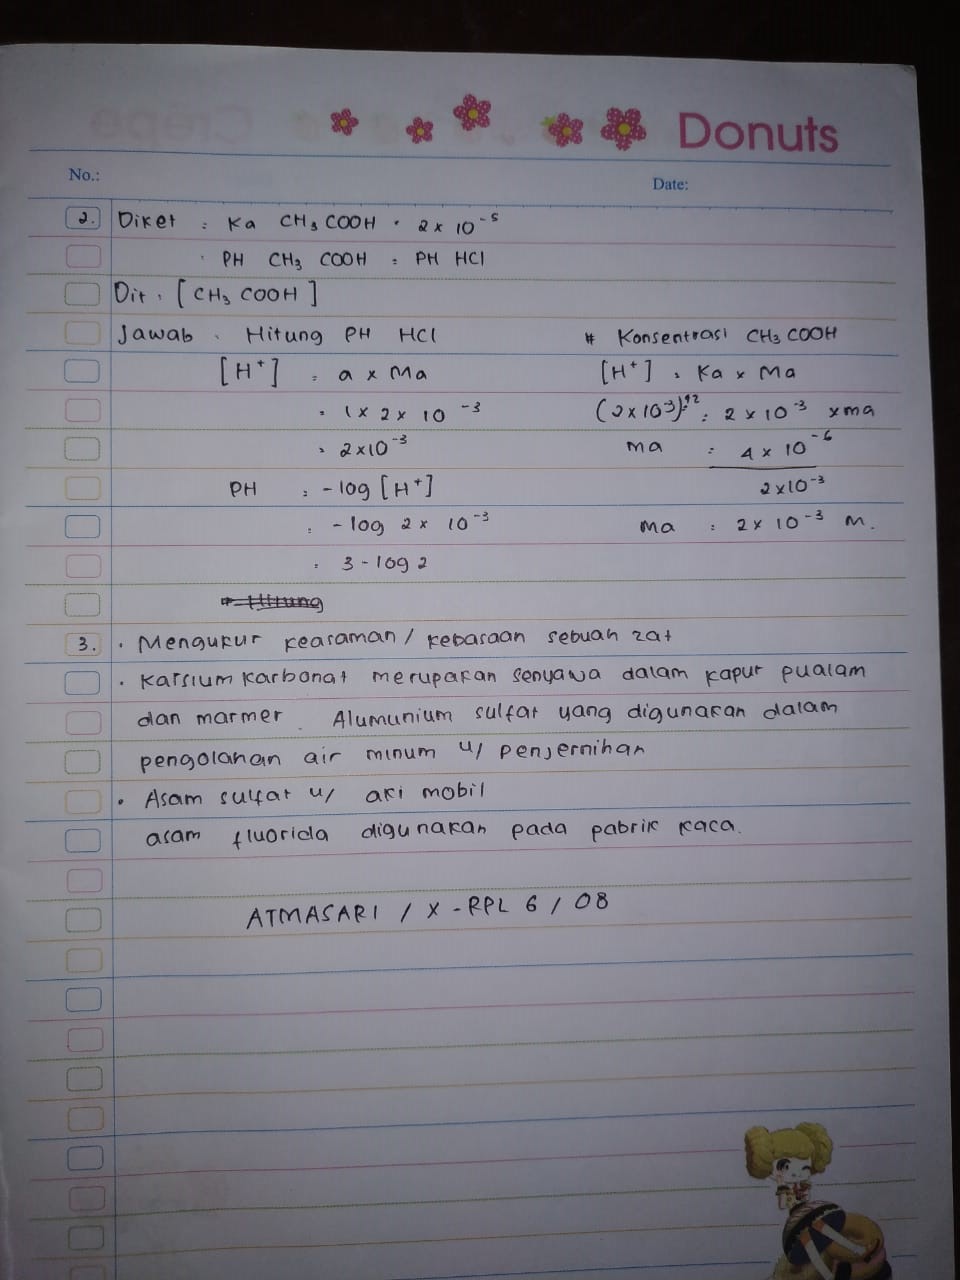 Donuts
No.:
Date:
2. Diket : Ka CH3COOH · 2 x 10⁻⁵
· PH CH3 COOH : PH HCl
Dit : [CH3 COOH]
Jawab · Hitung PH HCl
[H⁺] : a x Ma
: 1 x 2 x 10⁻³
: 2x10⁻³
PH : -log [H⁺]
: -log 2 x 10⁻³
: 3 - log 2
# Konsentrasi CH3 COOH
[H⁺] : Ka x Ma
(2x10⁻³)² : 2 x 10⁻³ x ma
ma : 4 x 10⁻⁶
2x10⁻³
Ma : 2x 10⁻³ M.
3. · Mengukur keasaman / kebasaan sebuah zat
· Kalsium karbonat merupakan senyawa dalam kapur pualam
dan marmer. Alumunium sulfat yang digunakan dalam
pengolahan air minum u/ penjernihan
· Asam sulfat u/ aki mobil
asam fluorida digunakan pada pabrik kaca.
ATMASARI / X - RPL 6 / 08